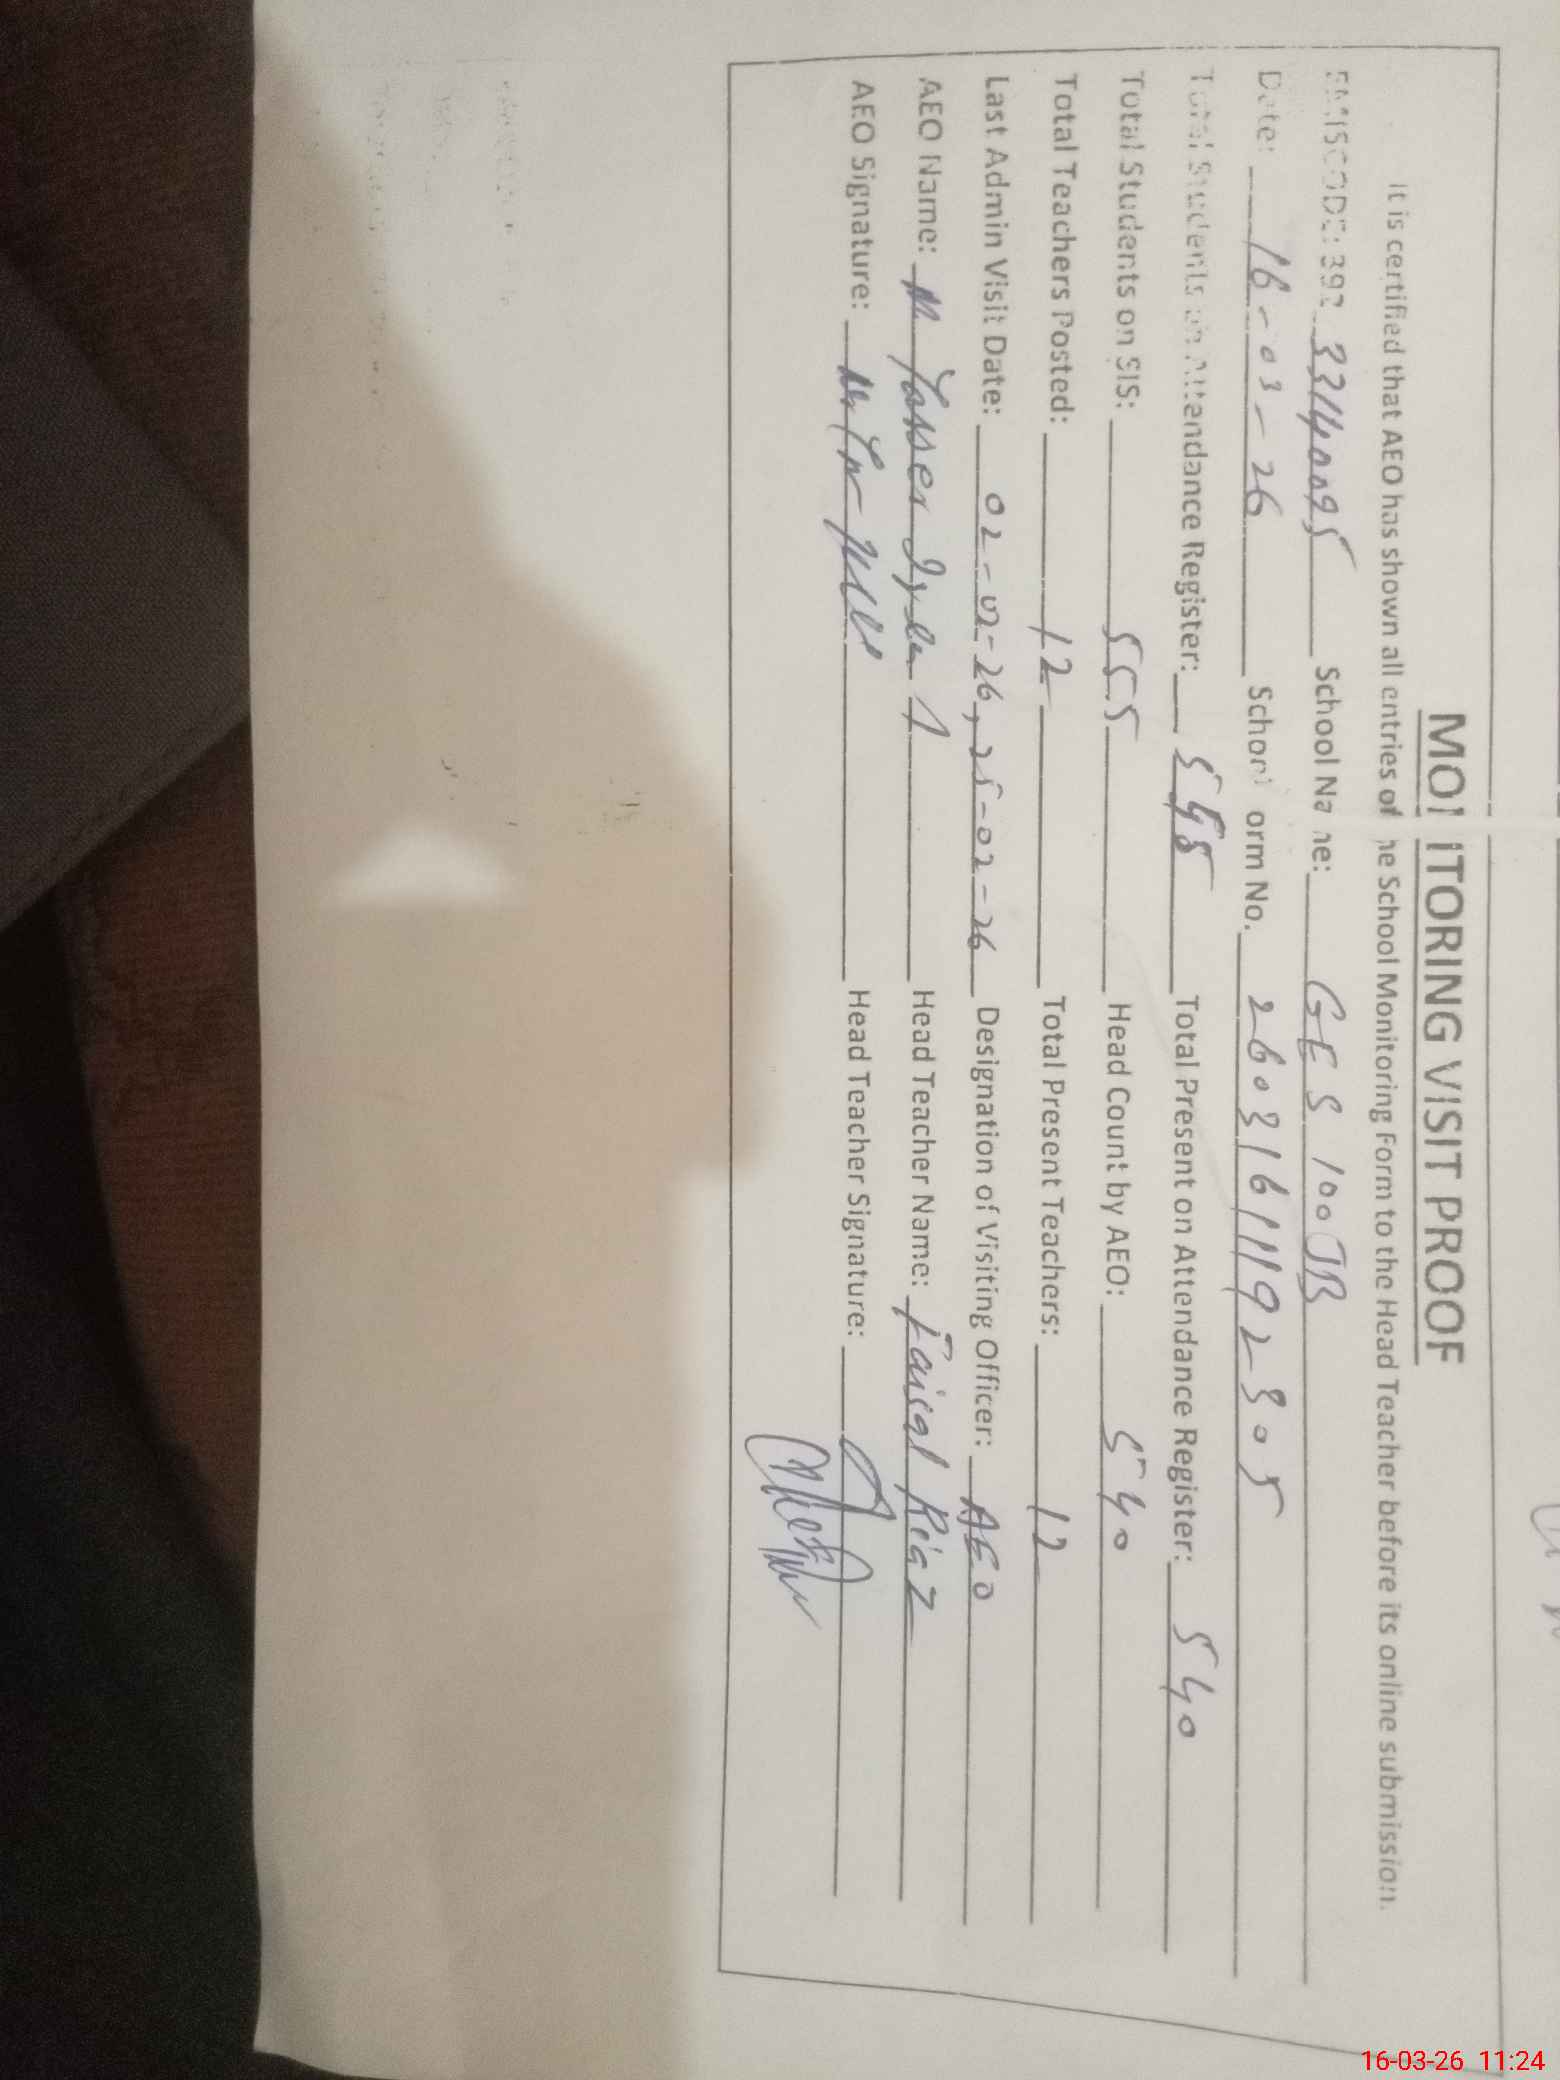 MONITORING VISIT PROOF
It is certified that AEO has shown all entries of the School Monitoring Form to the Head Teacher before its online submission.
EMISCODE: 392 33140095 School Name: GES 100 JB
Date: 16-03-26 School Form No. 26031611192305
Total Students on Attendance Register: 555 Total Present on Attendance Register: 540
Total Students on SIS: 555 Head Count by AEO: 540
Total Teachers Posted: 12 Total Present Teachers: 12
Last Admin Visit Date: 02-02-26, 25-02-26 Designation of Visiting Officer: AEO
AEO Name: M Yasser Head Teacher Name: Faisal Riaz
AEO Signature: Head Teacher Signature:
16-03-26 11:24